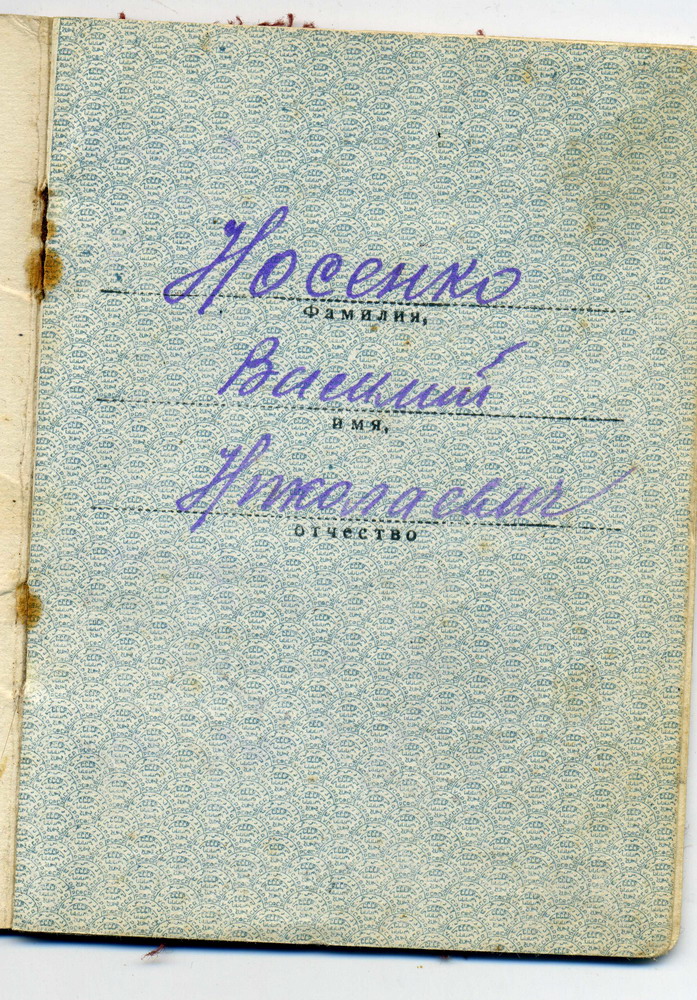 Носенко
Фамилия,
Василий
имя,
Николаевич
отчество